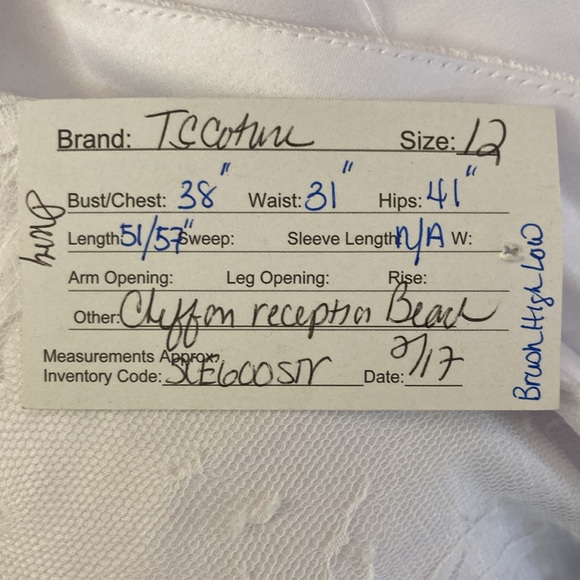 Brand: TC Coture Size: 12
Bust/Chest: 38" Waist: 31" Hips: 41"
Length: 51/57" Sweep: Sleeve Length: N/A W:
Arm Opening: Leg Opening: Rise:
Other: Cheffon reception Beach
Measurements Approx.
Inventory Code: Date: 2/17
Brush High Low